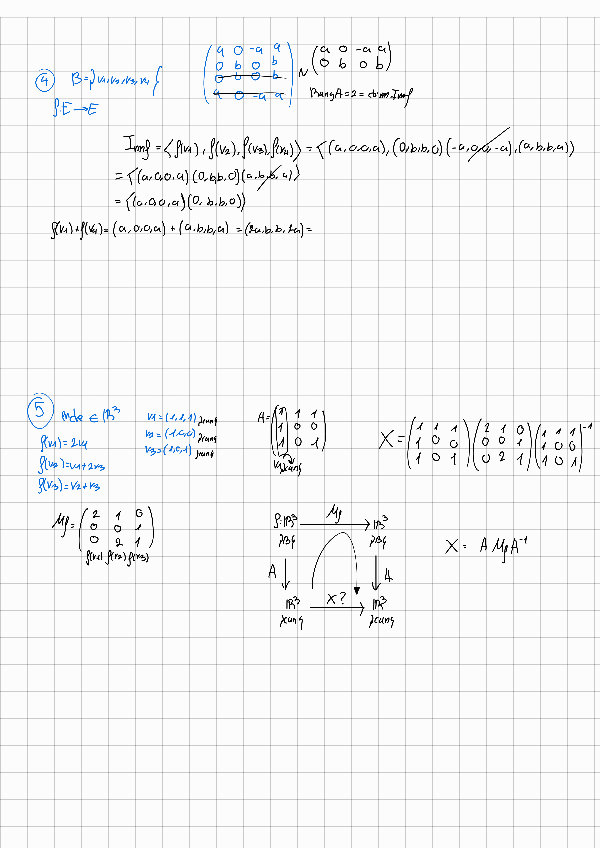 ④ B={v1,v2,v3,v4}
f:E→E
(a 0 -a a
0 b 0 b
0 b 0 b
a 0 -a a) ~ (a 0 -a a
0 b 0 b)
Rang A=2= dim Imf
Imf = <f(v1), f(v2), f(v3), f(v4)> = <(a,0,0,a), (0,b,b,0) (-a,0,0,-a), (a,b,b,a)>
= <(a,0,0,a) (0,b,b,0) (a,b,b,a)>
= <(a,0,0,a) (0,b,b,0)>
f(v1)+f(v4)= (a,0,0,a) + (a,b,b,a) = (2a,b,b,2a)=
⑤ endo ∈ ℝ³
f(v1)=2v1
f(v2)=v1+2v3
f(v3)=v2+v3
v1=(1,1,1)
v2=(1,0,0)
v3=(1,0,1)
A=(1 1 1
1 0 0
1 0 1)
X=(1 1 1
1 0 0
1 0 1)(2 1 0
0 0 1
0 2 1)(1 1 1
1 0 0
1 0 1)⁻¹
Mf=(2 1 0
0 0 1
0 2 1)
f(v1) f(v2) f(v3)
f:ℝ³ Mf → ℝ³
A ⇓ ⇓ A
ℝ³ X? → ℝ³
X= A Mf A⁻¹